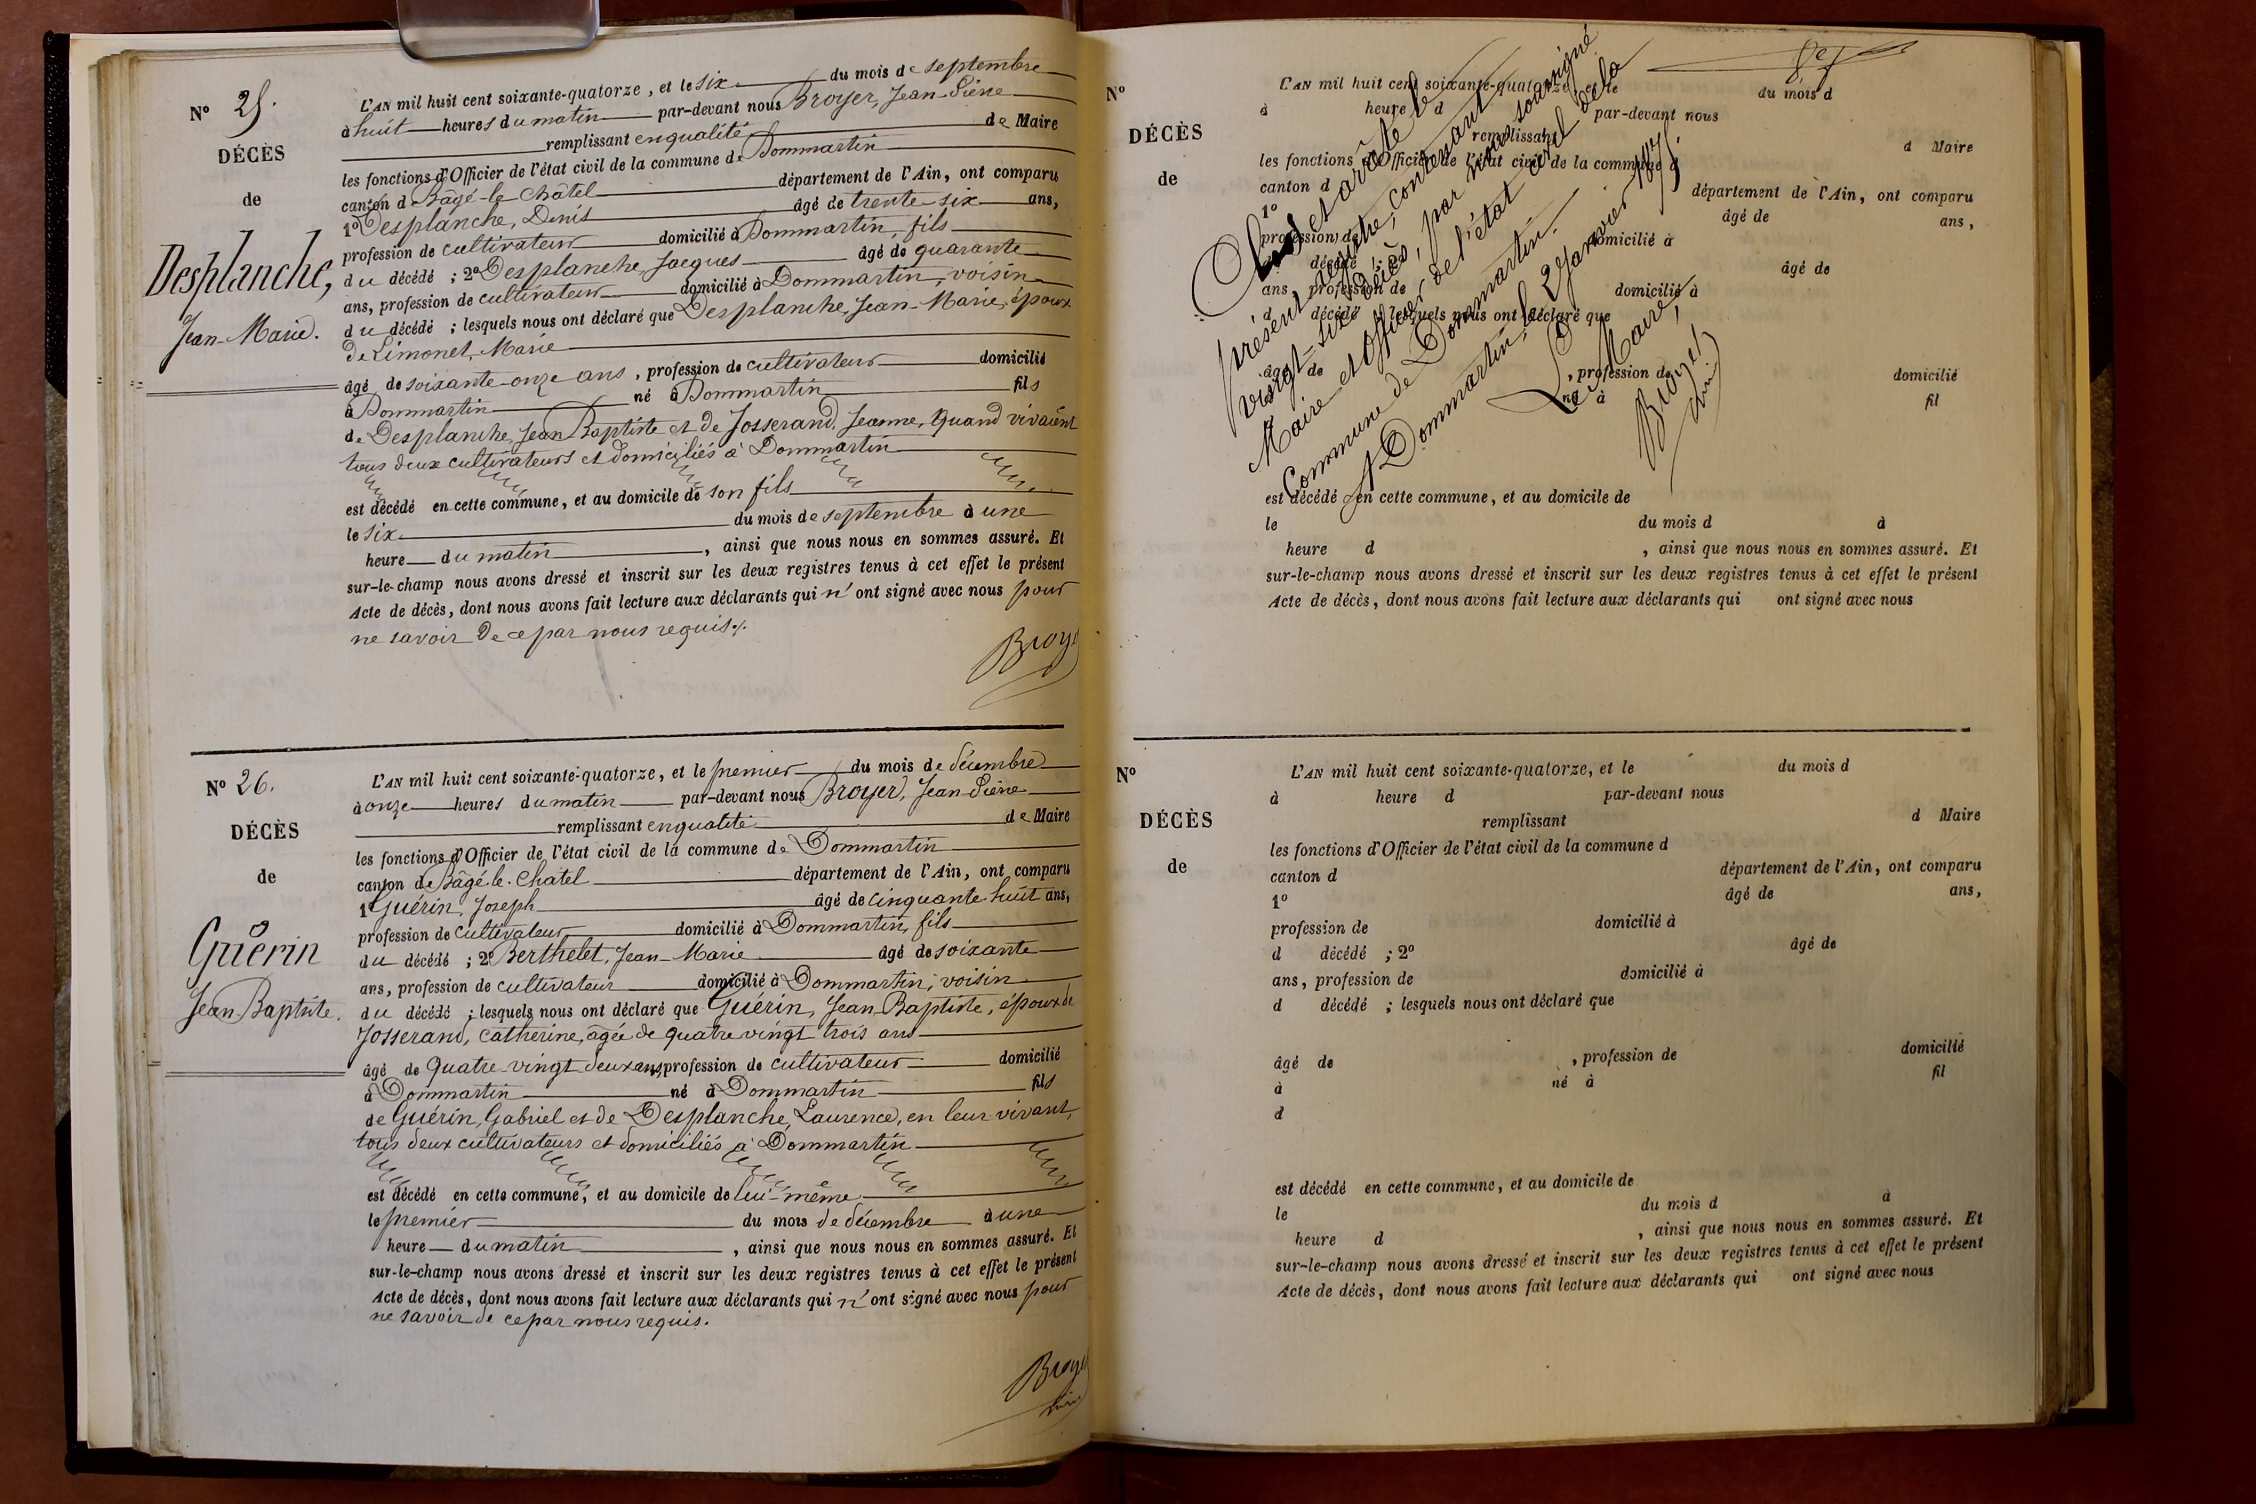 N° 25.
DÉCÈS
de
Desplanche,
Jean-Marie.
L'AN mil huit cent soixante-quatorze, et le six du mois de septembre
à huit heures du matin par-devant nous Broyer, Jean-Pierre
remplissant en qualité de Maire
les fonctions d'Officier de l'état civil de la commune de Dommartin
canton de Bâgé-le-Châtel département de l'Ain, ont comparu
1° Desplanche, Denis âgé de trente six ans,
profession de cultivateur domicilié à Dommartin, fils
du décédé ; 2° Desplanche, Jacques âgé de quarante
ans, profession de cultivateur domicilié à Dommartin, voisin
du décédé ; lesquels nous ont déclaré que Desplanche, Jean-Marie, époux
de Limonet, Marie
âgé de soixante-onze ans, profession de cultivateur domicilié
à Dommartin né à Dommartin fils
de Desplanche, Jean Baptiste et de Josserand, Jeanne, quand vivaient
tous deux cultivateurs et domiciliés à Dommartin
est décédé en cette commune, et au domicile de son fils
le six du mois de septembre à une
heure du matin, ainsi que nous nous en sommes assuré. Et
sur-le-champ nous avons dressé et inscrit sur les deux registres tenus à cet effet le présent
Acte de décès, dont nous avons fait lecture aux déclarants qui n'ont signé avec nous pour
ne savoir de ce par nous requis.
Broye
N° 26.
DÉCÈS
de
Guérin
Jean Baptiste.
L'AN mil huit cent soixante-quatorze, et le premier du mois de décembre
à onze heures du matin par-devant nous Broyer, Jean-Pierre
remplissant en qualité de Maire
les fonctions d'Officier de l'état civil de la commune de Dommartin
canton de Bâgé-le-Chatel département de l'Ain, ont comparu
1° Guérin, Joseph âgé de cinquante huit ans,
profession de cultivateur domicilié à Dommartin, fils
du décédé ; 2° Berthelet, Jean-Marie âgé de soixante
ans, profession de cultivateur domicilié à Dommartin, voisin
du décédé ; lesquels nous ont déclaré que Guérin, Jean Baptiste, époux de
Josserand, Catherine, âgée de quatre vingt trois ans
âgé de quatre-vingt deux ans, profession de cultivateur domicilié
à Dommartin né à Dommartin fils
de Guérin, Gabriel et de Desplanche, Laurence, en leur vivant,
tous deux cultivateurs et domiciliés à Dommartin
est décédé en cette commune, et au domicile de lui-même
le premier du mois de décembre à une
heure du matin, ainsi que nous nous en sommes assuré. Et
sur-le-champ nous avons dressé et inscrit sur les deux registres tenus à cet effet le présent
Acte de décès, dont nous avons fait lecture aux déclarants qui n'ont signé avec nous pour
ne savoir de ce par nous requis.
Broye
N°
DÉCÈS
de
L'AN mil huit cent soixante-quatorze, et le du mois d
à heure d par-devant nous
remplissant d Maire
les fonctions d'Officier de l'état civil de la commune d
canton d département de l'Ain, ont comparu
1° âgé de ans,
profession de domicilié à
d décédé ; 2° âgé de
ans, profession de domicilié à
d décédé ; lesquels nous ont déclaré que
âgé de , profession de domicilié
à né à fil
est décédé en cette commune, et au domicile de
le du mois d à
heure d , ainsi que nous nous en sommes assuré. Et
sur-le-champ nous avons dressé et inscrit sur les deux registres tenus à cet effet le présent
Acte de décès, dont nous avons fait lecture aux déclarants qui ont signé avec nous
Clos et arrêté le
présent registre, contenant
vingt-six décès, par nous soussigné
Maire et Officier de l'état civil de la
Commune de Dommartin.
A Dommartin, le 2 Janvier 1875
Le Maire,
Broyer
N°
DÉCÈS
de
L'AN mil huit cent soixante-quatorze, et le du mois d
à heure d par-devant nous
remplissant d Maire
les fonctions d'Officier de l'état civil de la commune d
canton d département de l'Ain, ont comparu
1° âgé de ans,
profession de domicilié à
d décédé ; 2° âgé de
ans, profession de domicilié à
d décédé ; lesquels nous ont déclaré que
âgé de , profession de domicilié
à né à fil
d
est décédé en cette commune, et au domicile de
le du mois d à
heure d , ainsi que nous nous en sommes assuré. Et
sur-le-champ nous avons dressé et inscrit sur les deux registres tenus à cet effet le présent
Acte de décès, dont nous avons fait lecture aux déclarants qui ont signé avec nous